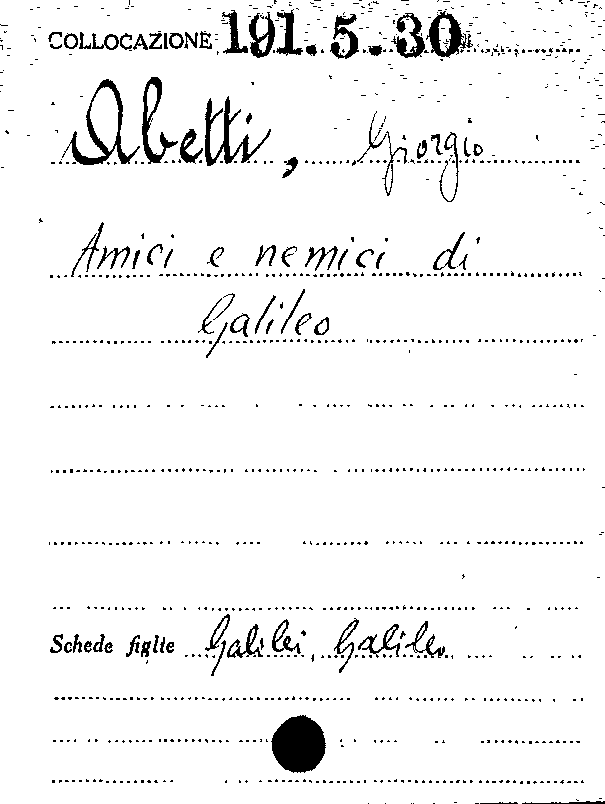 COLLOCAZIONE 191.5.30
Abetti, Giorgio
Amici e nemici di
Galileo
Schede figlie Galilei, Galileo